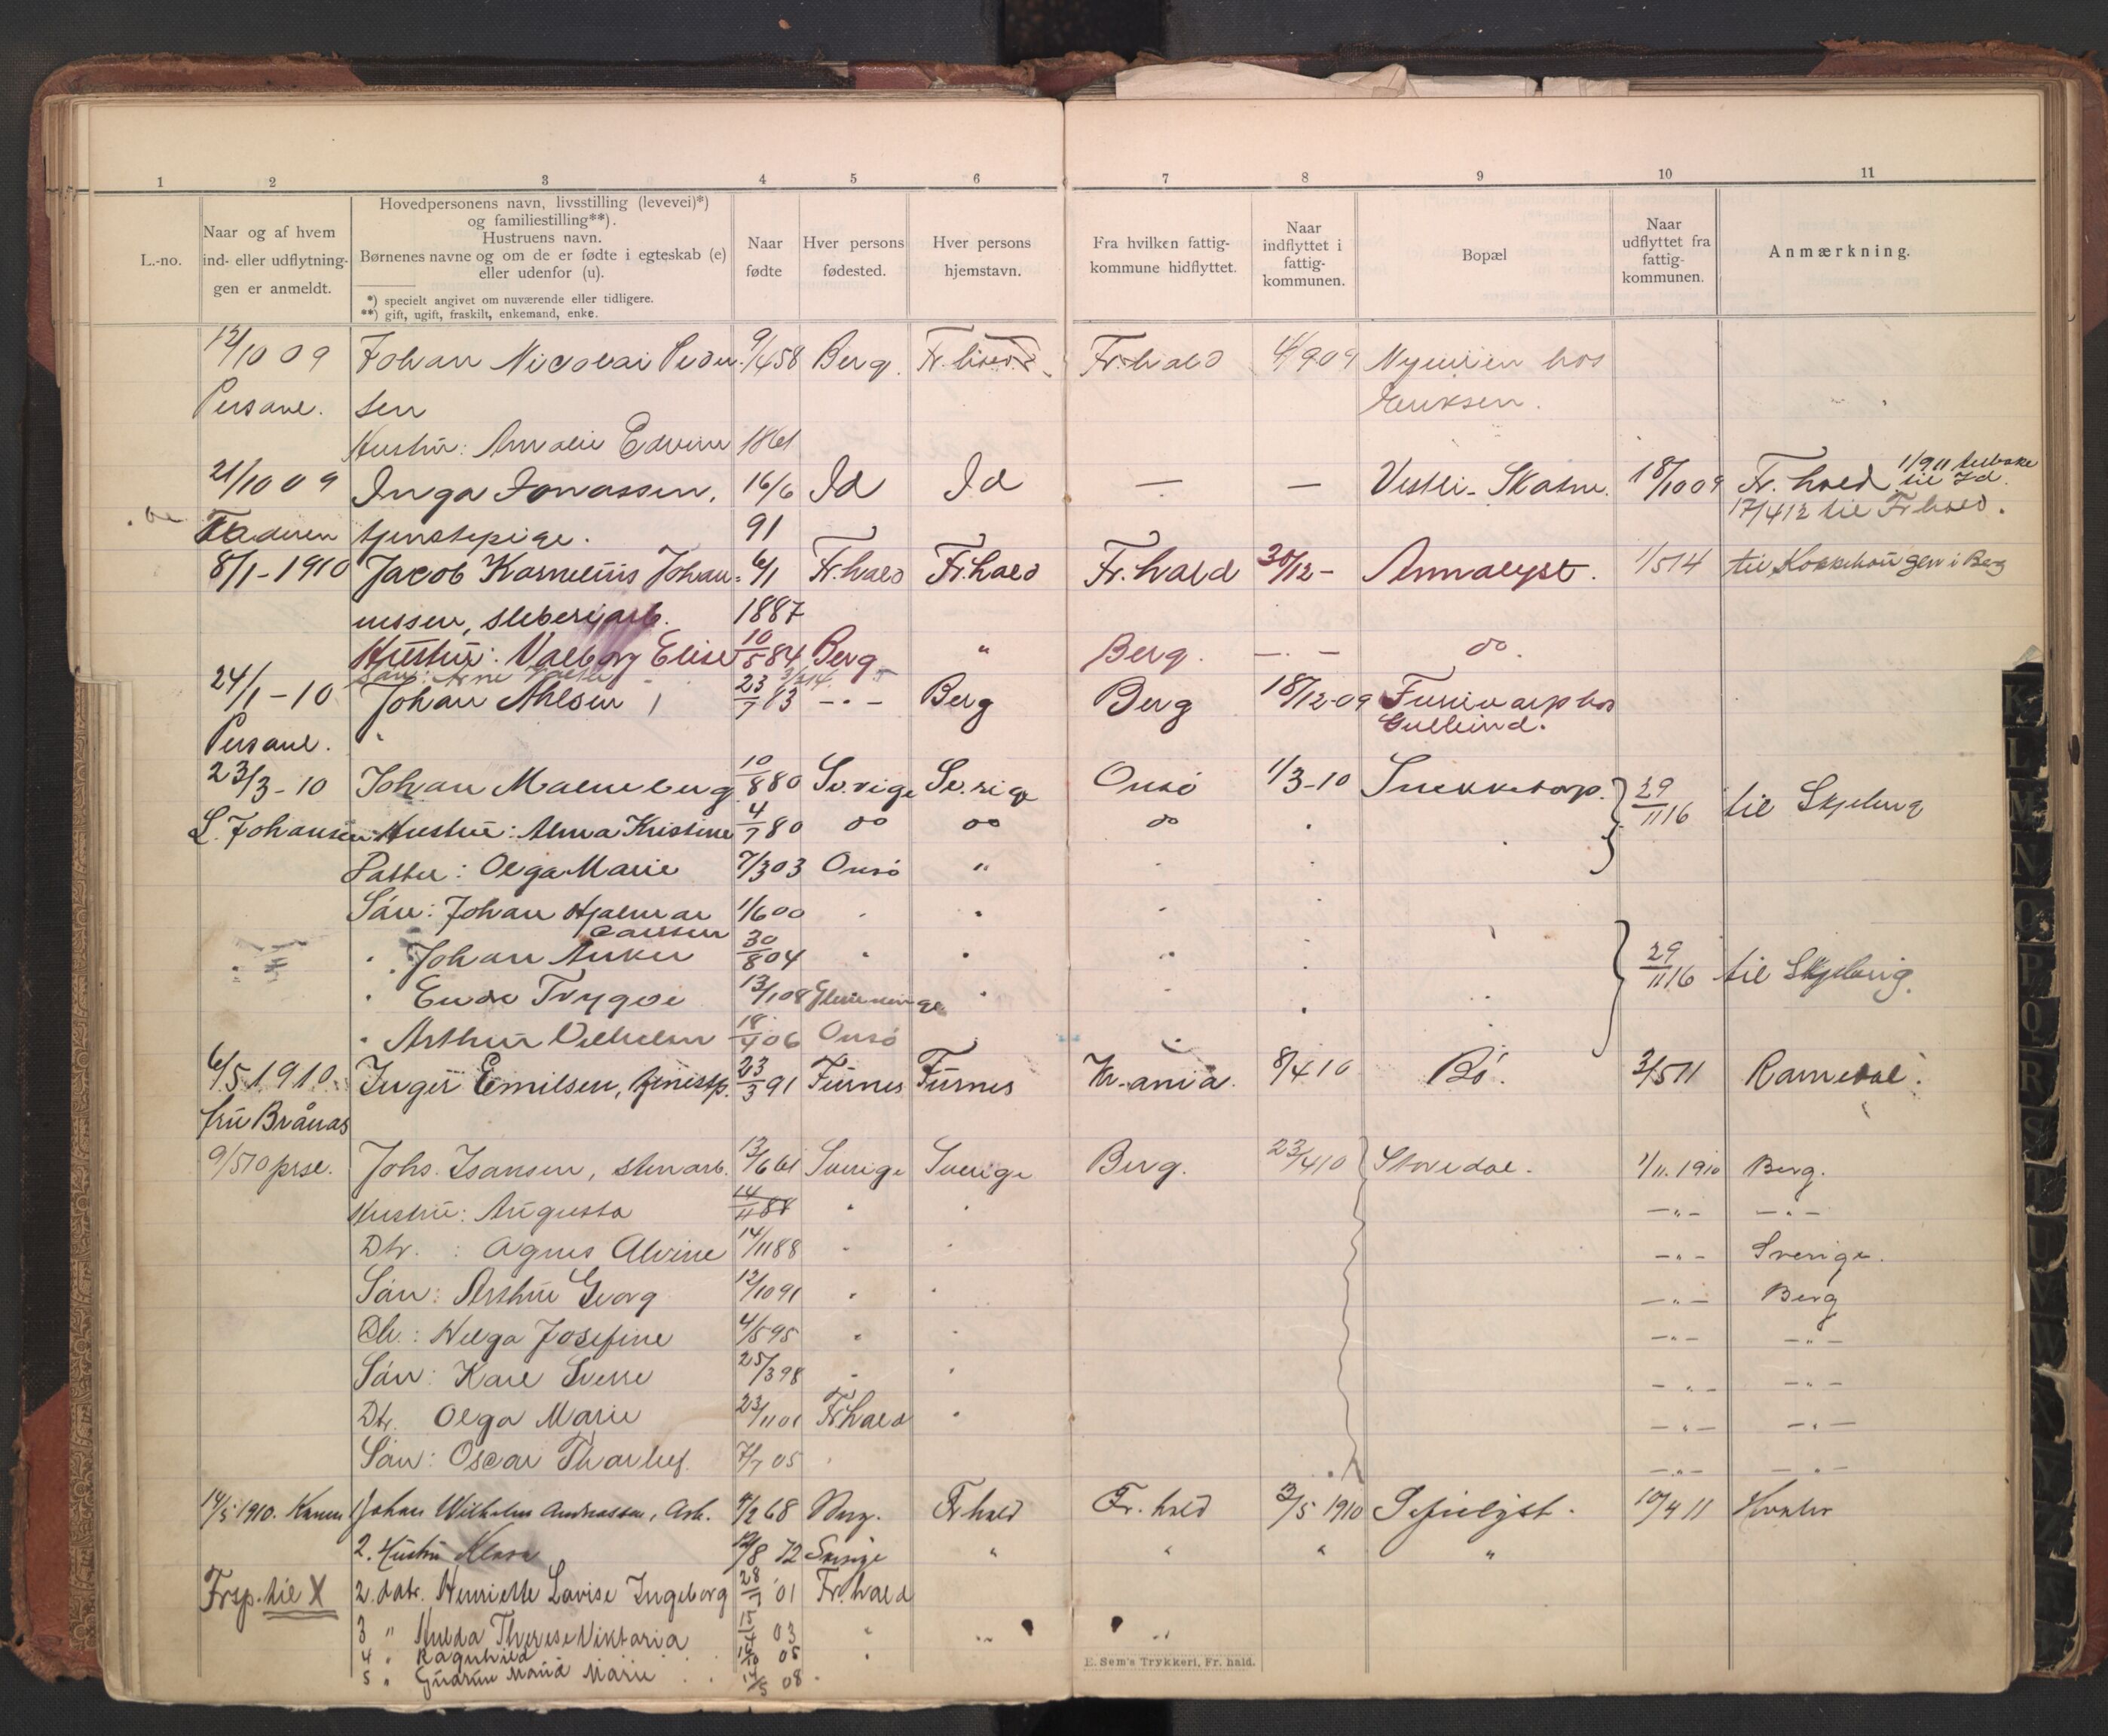 1 2 3 4 5 6 7 8 9 10 11
L.-no.
Naar og af hvem
ind- eller udflytnin-
gen er anmeldt.
Hovedpersonens navn, livsstilling (levevei)*)
og familiestilling**).
Hustruens navn.
Børnenes navne og om de er fødte i egteskab (e)
eller udenfor (u).
*) specielt angivet om nuværende eller tidligere.
**) gift, ugift, fraskilt, enkemand, enke.
Naar
fødte
Hver persons
fødested.
Hver persons
hjemstavn.
Fra hvilken fattig-
kommune hidflyttet.
Naar
indflyttet i
fattig-
kommunen.
Bopæl
Naar
udflyttet fra
fattig-
kommunen.
Anmærkning.
12/10 09 Johan Nicolai Peder- 9/4 58 Berg. Fr.hald. Fr.hald 4/9 09 hos
Persone. sen Eriksen.
Hustru: Amalie Edvine 1861
21/10 09 Inga Jonassen, 16/6 Id Id — — Vestli-Skatne. 18/10 09 Fr. hald 1/9 11 tilbake til Id.
17/4 12 til Frhald.
Faderen tjenstepige. 91
8/1-1910 Jacob Kornelius Johan- 6/1 Fr.hald Fr.hald Fr.hald 30/12- Annalyst. 1/5 14 til i Berg
nessen, sliberiarb. 1887
Hustru: Valborg Elise 10/5 84 Berg " Berg. —.— do.
Søn: Arne
24/1-10 Johan Ahlsen, 23/7 83 —.— Berg Berg 18/12-09 hos
Persone. "
23/3-10 Johan Malmeberg 10/8 80 Sv.rige Sv.rige Onsö 1/3-10 29/11 16 til Skjeberg
L. Johansen Hustru: Alma Kristine 4/7 80 do do do
Datter: Olga Marie 7/3 03 Onsö "
Sön: Johan Hjalmar 1/6 00
" Johan Anker 30/8 04 29/11 16 til Skjeberg.
" Trygve 13/1 08 Glemminge
" Arthur Vilhelm 18/4 06 Onsö
6/5 1910. Inger Emilsen, tjenestp. 23/3 91 Furnes Furnes Kr.ania. 8/4 10 Bö. 3/5 11 Ramedal.
fru Brånas
9/5 10 prse. Johs. Isansen, stenarb. 13/6 61 Sverige Sverige Berg. 23/4 10 Storedal. 1/11. 1910 Berg.
Hustru: Augusta 14/11 88 " " —"— —"—
Dtr. : Agnes Alvine 14/11 88 " " —"— Sverige.
Sön: Arthur Georg 12/10 91 " " —"— Berg
Dtr.: Helga Josefine 4/5 95 " " —"— —"—
Sön: Karl Sverre 25/3 98 " " —"— —"—
Dtr. Olga Marie 23/11 01 Fr.hald " —"— —"—
Sön: Oscar Thorleif. 7/7 05 " —"— —"—
14/5 1910. 1 Johan Wilhelm Andreassen, Arb. 5/2 68 Berg. Fr.hald Fr. hald 3/5 1910 Sofielyst. 10/4 11 Hvaler
2. Hustru Klara 72 Sverige " " " "
Frsp. til X 2. datr. Henriette Lovise Ingeborg 28/7 '01 Fr.hald
3 " Hulda Therese Viktoria 03 "
4 " Ragnhild 05 "
5 " Gudrun Maria Marie 08 "
E. Sem's Trykkeri, Fr. hald.
K L M N O P Q R S T U V W